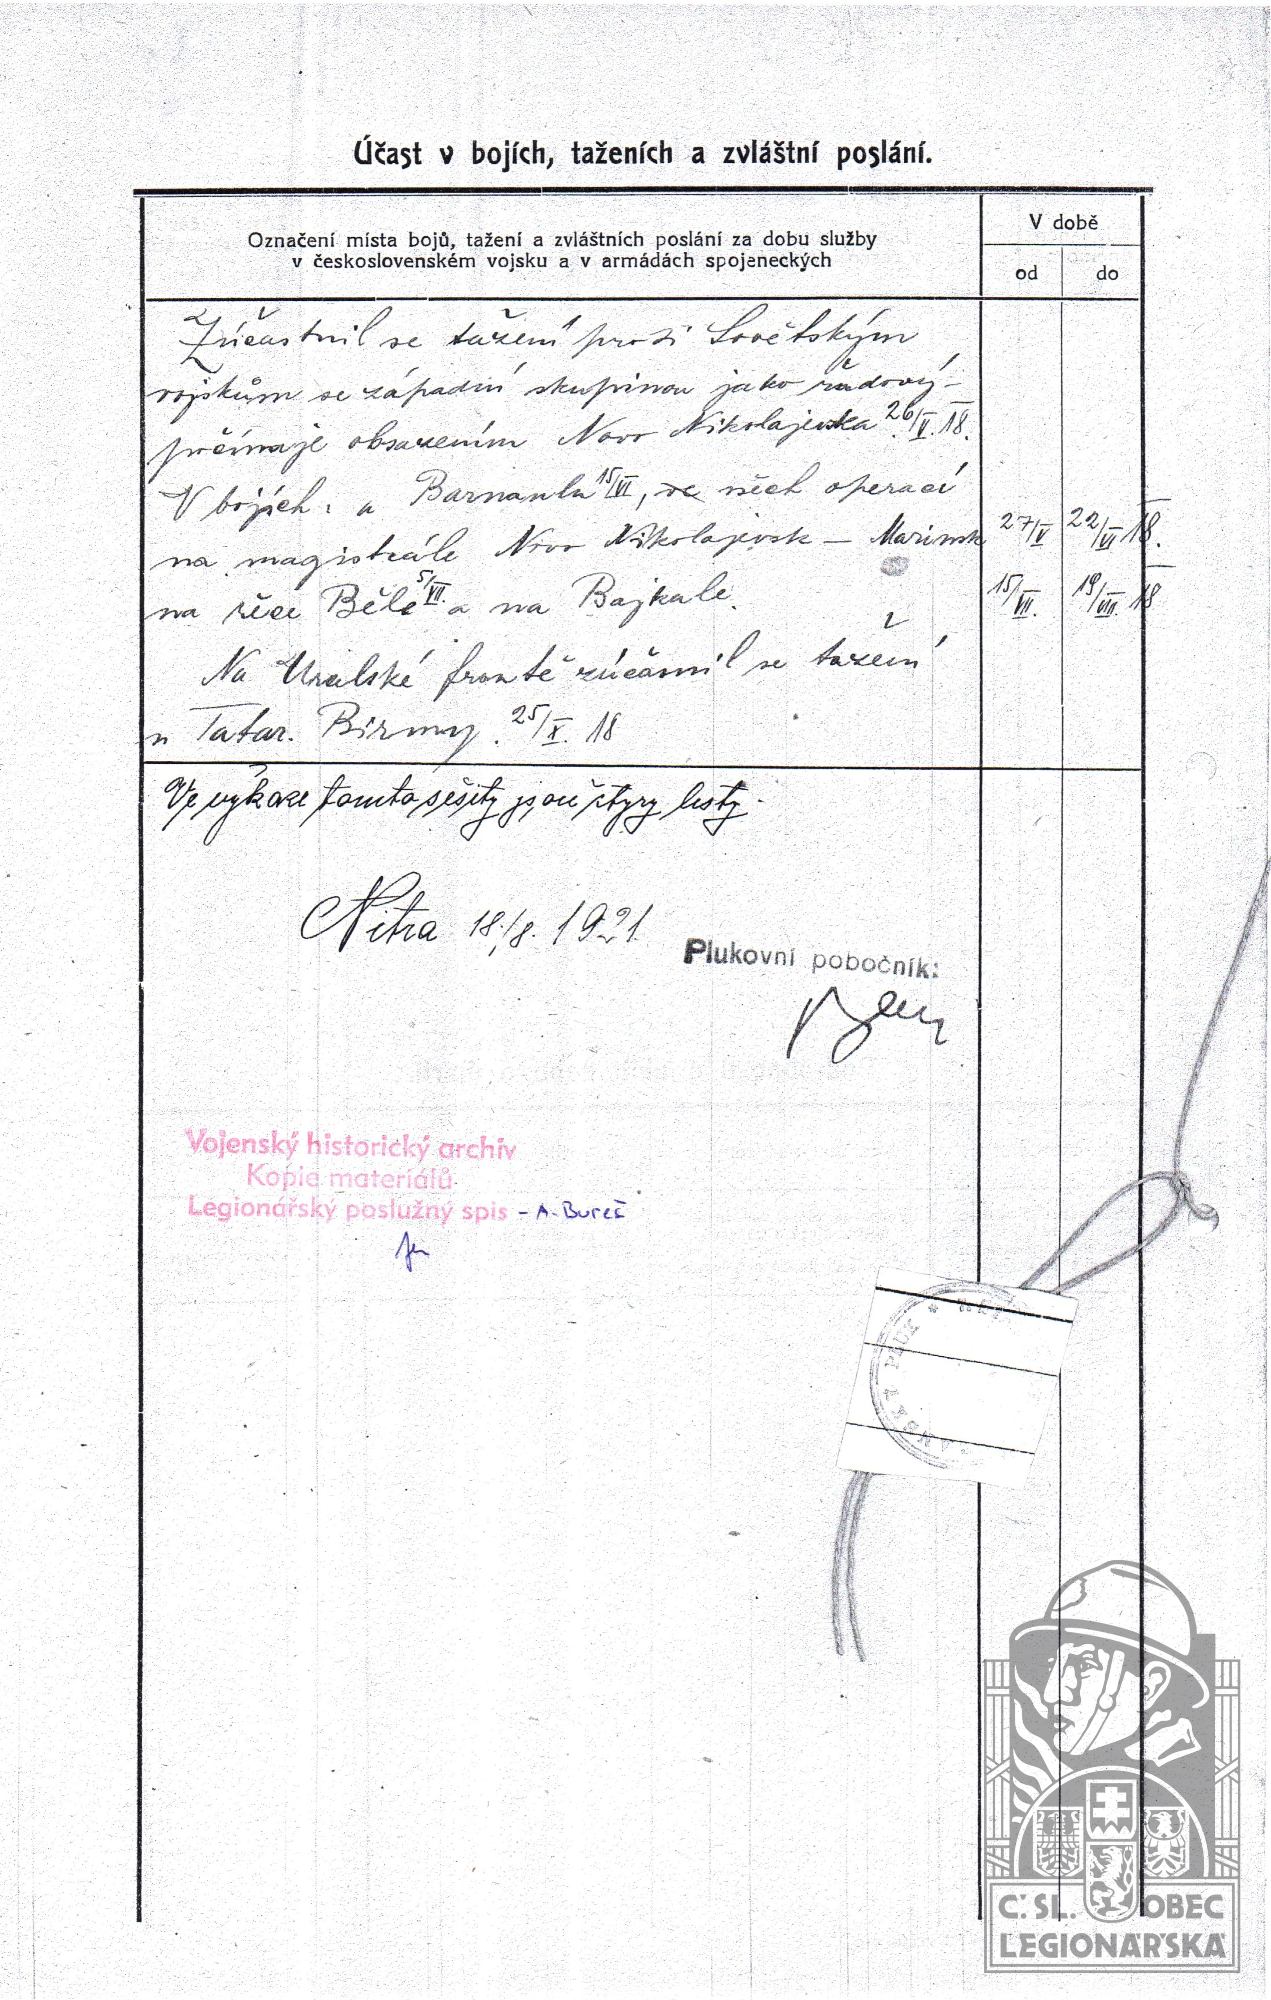 Účast v bojích, taženích a zvláštní poslání.
Označení místa bojů, tažení a zvláštních poslání za dobu služby
v československém vojsku a v armádách spojeneckých
V době
od
do
Zúčastnil se tažení proti Sovětským
vojskům se západní skupinou jako řadový
počínaje obsazením Novo Nikolajevska 26/V. 18.
V bojích u Barnaulu 15/VI, ve všech operací
na magistrále Novo Nikolajevsk – Marinsk 27/V 22/VI 18.
na řece Bělé 5/VII. a na Bajkale. 15/VII. 19/VIII. 18
Na Uralské frontě zúčasnil se tažení
u Tatar. Birmy. 25/X. 18
Ve výkaze tomto sešity jsou čtyry listy.
Nitra 18./8. 1921.
Plukovní pobočník:
Vojenský historický archiv
Kopie materiálů
Legionářský poslužný spis – A. Bureš
ČSL. OBEC
LEGIONÁŘSKÁ